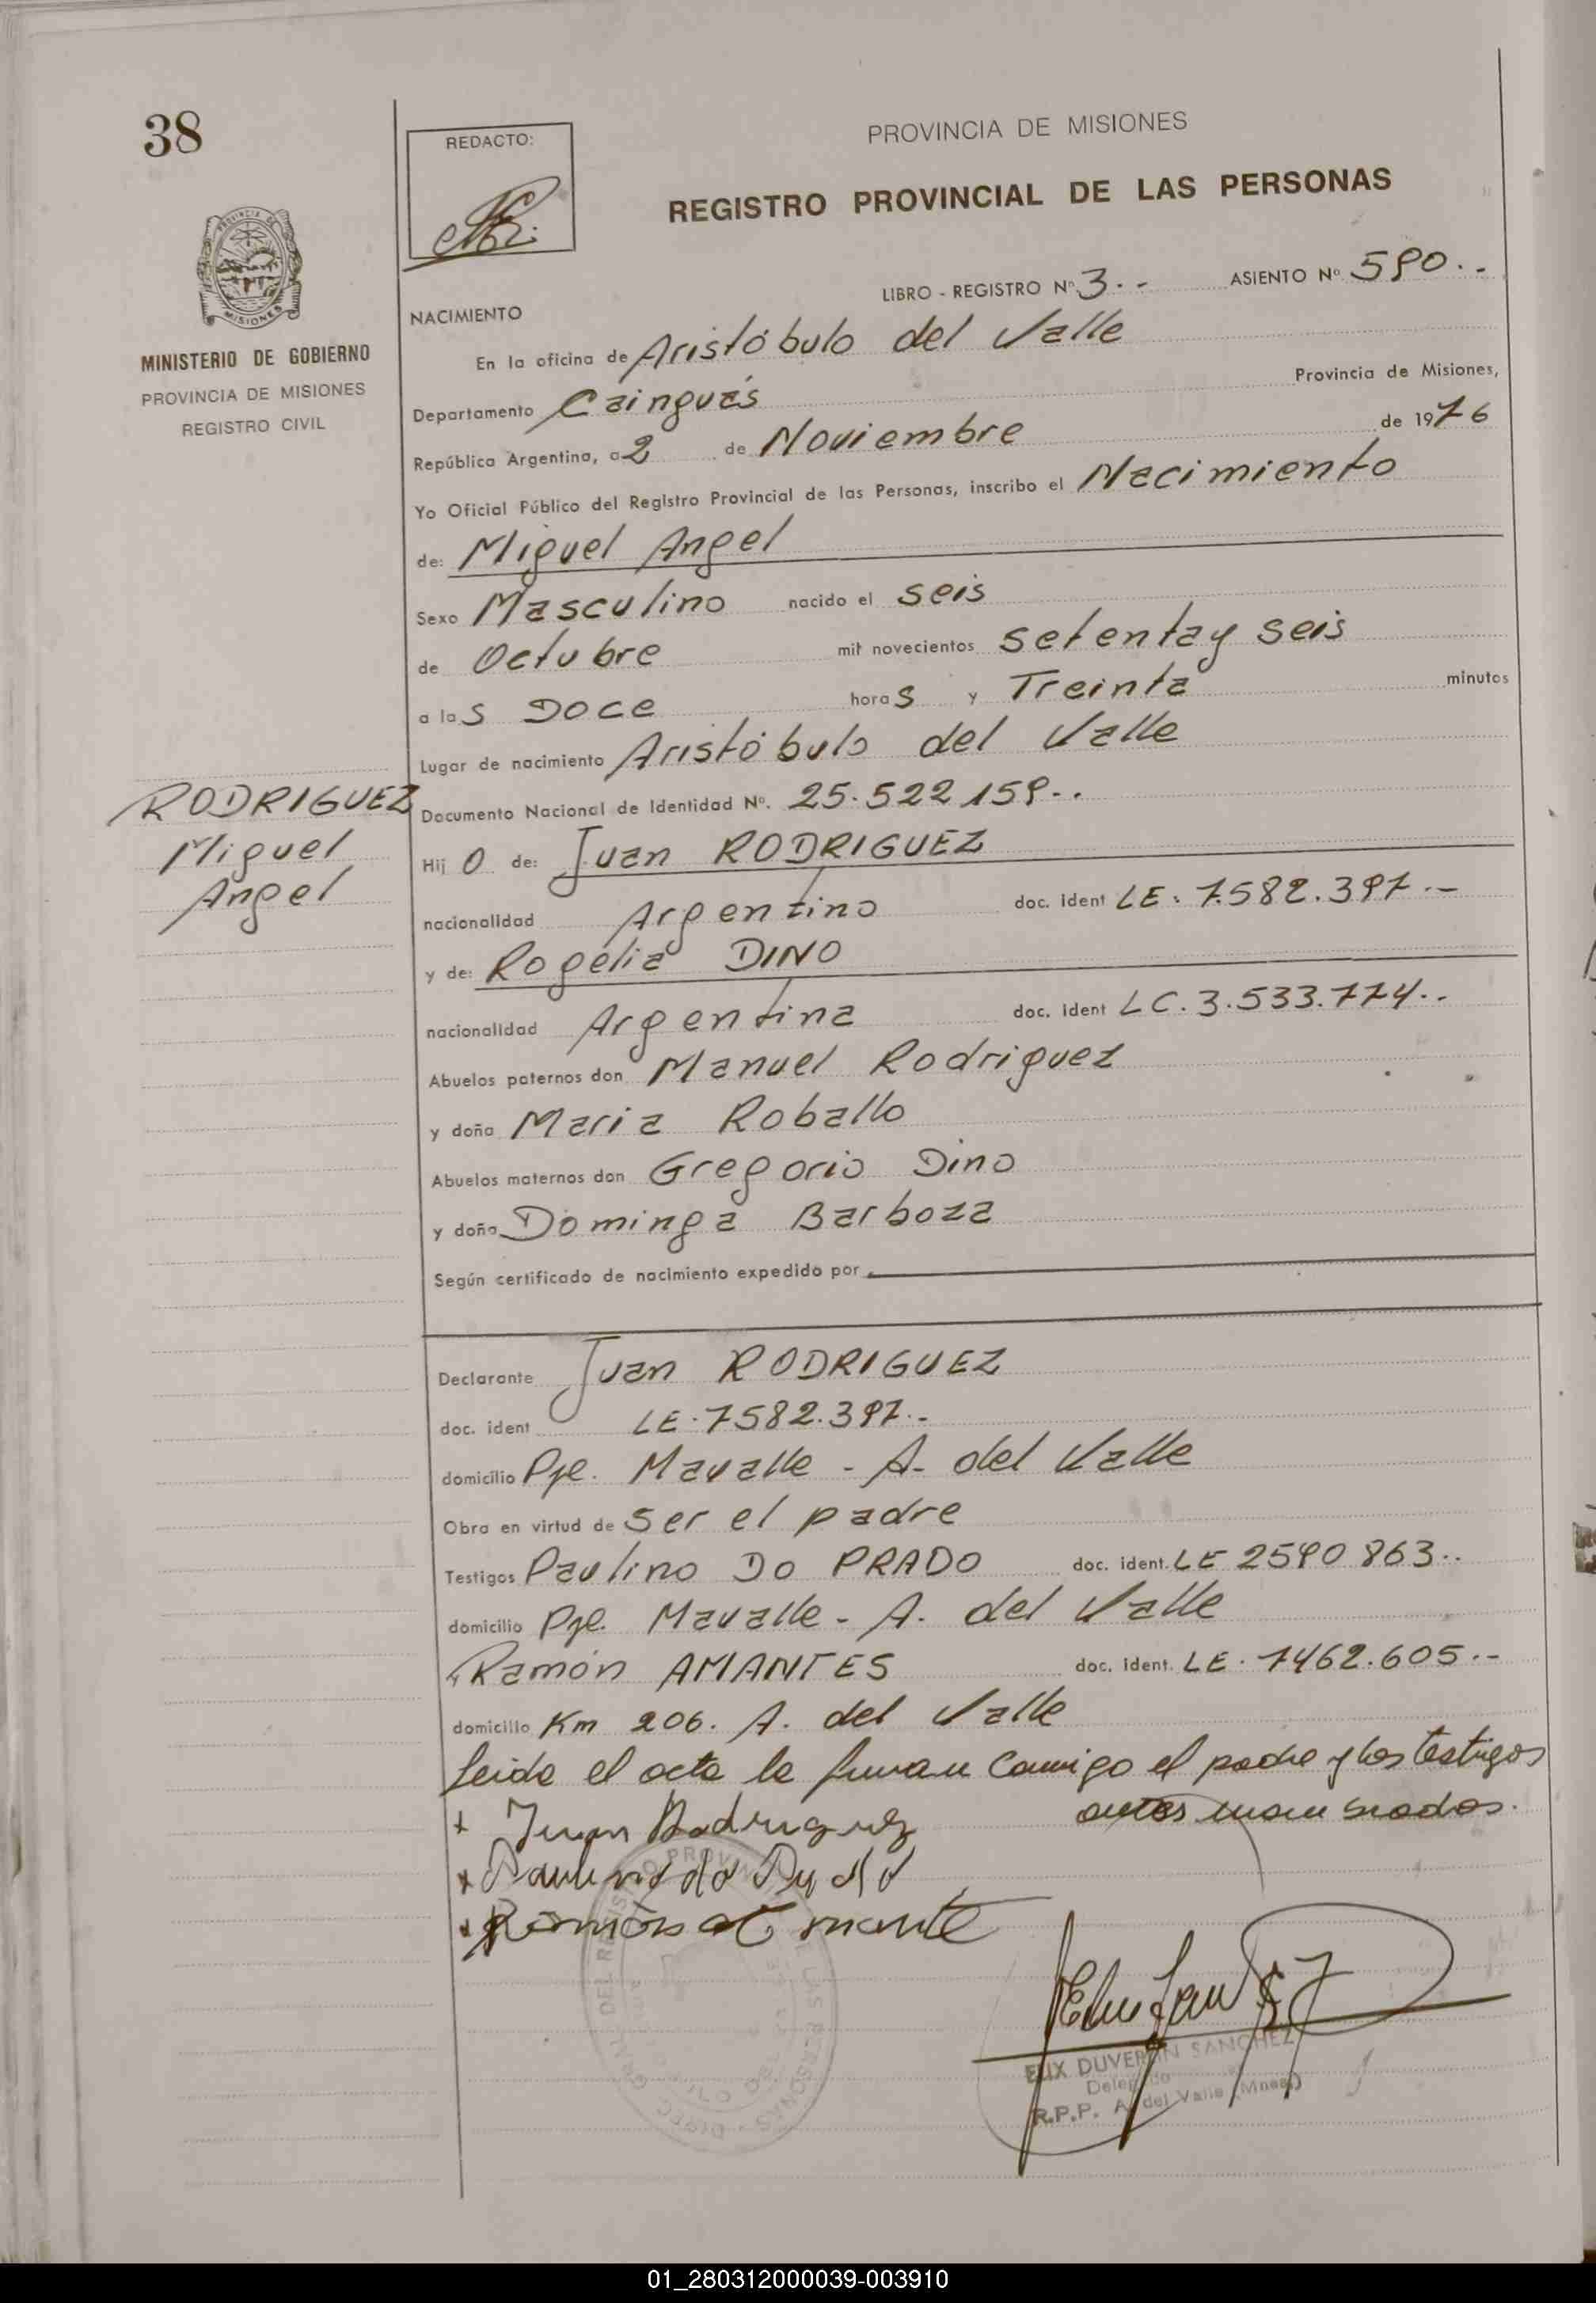 38
REDACTO:
PROVINCIA DE MISIONES
REGISTRO PROVINCIAL DE LAS PERSONAS
PROVINCIA DE
MISIONES
MINISTERIO DE GOBIERNO
PROVINCIA DE MISIONES
REGISTRO CIVIL
LIBRO - REGISTRO Nº 3.- ASIENTO Nº 590.-
NACIMIENTO
En la oficina de Aristóbulo del Valle
Departamento Cainguás Provincia de Misiones,
República Argentina, a 2 de Noviembre de 1976
Yo Oficial Público del Registro Provincial de las Personas, inscribo el Nacimiento
de: Miguel Angel
Sexo Masculino nacido el seis
de Octubre mil novecientos setenta y seis
a las DOCE horas y Treinta minutos
Lugar de nacimiento Aristóbulo del Valle
RODRIGUEZ
Miguel
Angel
Documento Nacional de Identidad Nº. 25.522.159-.
Hijo de: Juan RODRIGUEZ
nacionalidad Argentino doc. ident LE. 7.582.397.-
y de: Rogelia DINO
nacionalidad Argentina doc. ident LC. 3.533.774.-
Abuelos paternos don Manuel Rodriguez
y doña Maria Roballo
Abuelos maternos don Gregorio Dino
y doña Dominga Barboza
Según certificado de nacimiento expedido por
Declarante Juan RODRIGUEZ
doc. ident LE. 7582.397.-
domicilio Pje. Mavalle - A. del Valle
Obra en virtud de ser el padre
Testigos Paulino DO PRADO doc. ident. LE 2590 863.-
domicilio Pje. Mavalle - A. del Valle
Ramón AMANTES doc. ident. LE. 7462.605.-
domicilio Km 206. A. del Valle
Leida el acta la firman conmigo el padre y los testigos
antes mencionados.
Juan Rodriguez
ELIX DUVER N SANCHEZ
Delegado
R.P.P. A. del Valle (Mnes.)
01_280312000039-003910